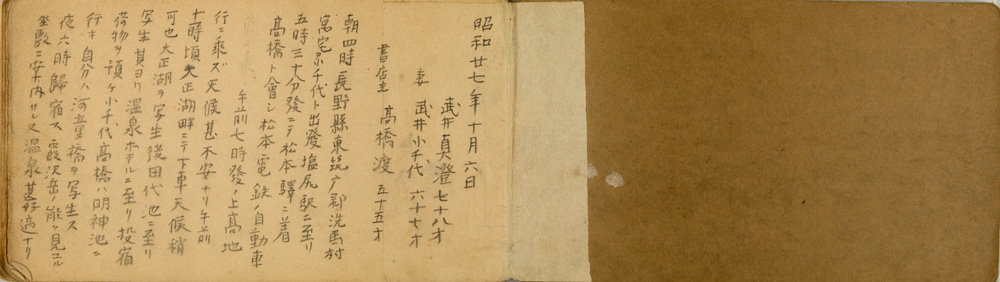 昭和廿七年十月六日
武井真澄 七十八才
妻 武井小千代 六十七才
書店主 高橋渡 五十五才
朝四時長野縣東筑广郡洗馬村
寓宅ヲ小千代ト出発塩尻駅ニ至リ
五時三十分発ニテ松本驛ニ着
高橋ト會シ松本電鉄ノ自動車
午前七時発ノ上高地
行ニ乘ズ天候甚不安ナリ午前
十時頃大正湖畔ニテ下車天候稍
可也大正湖ヲ写生後田代池ニ至リ
写生其ヨリ温泉ホテルニ至リ投宿
荷物ヲ預ケ小千代高橋ハ明神池ニ
行キ自分ハ河童橋ヲ写生ス
夜六時歸宿ス霞沢岳ノ能ク見ユル
座敷ニ安内サレヌ温泉甚好適ナリ